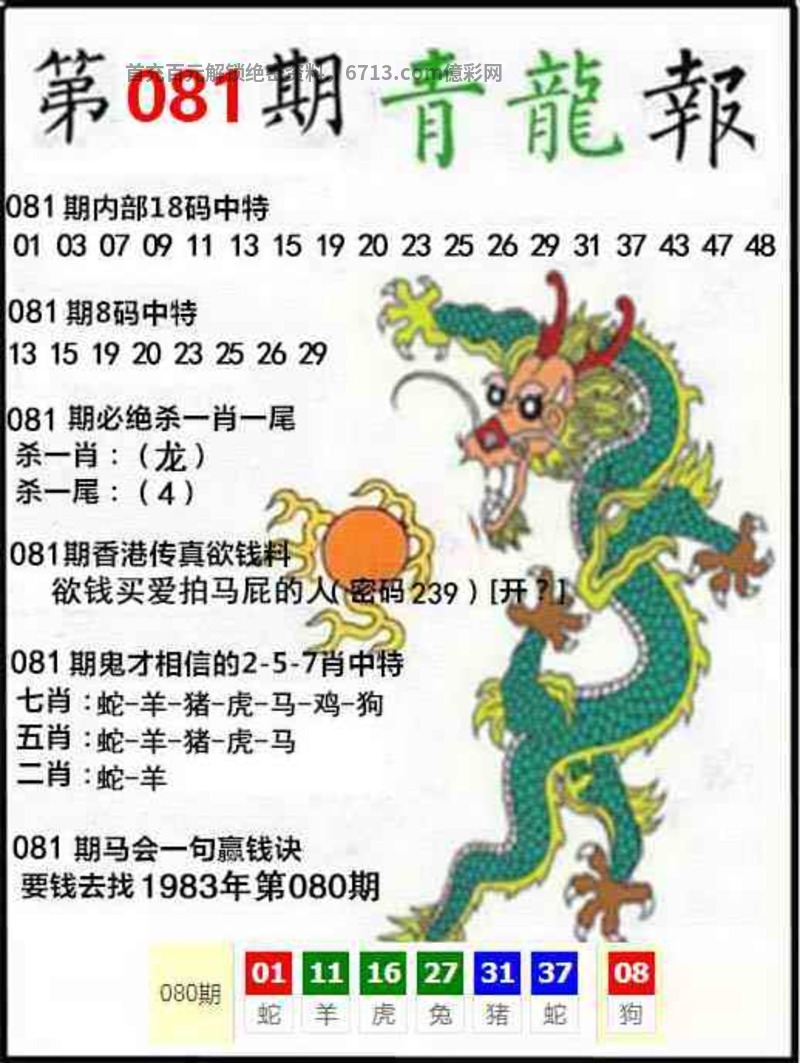 首充百元解锁绝密资料 6713.com億彩网
第081期青龍報
081期内部18码中特
01 03 07 09 11 13 15 19 20 23 25 26 29 31 37 43 47 48
081期8码中特
13 15 19 20 23 25 26 29
081 期必绝杀一肖一尾
杀一肖：（龙）
杀一尾：（4）
081期香港传真欲钱料
欲钱买爱拍马屁的人(密码239)[开？]
081期鬼才相信的2-5-7肖中特
七肖：蛇-羊-猪-虎-马-鸡-狗
五肖：蛇-羊-猪-虎-马
二肖：蛇-羊
081 期马会一句赢钱诀
要钱去找1983年第080期
080期 01 11 16 27 31 37 08
蛇 羊 虎 兔 猪 蛇 狗